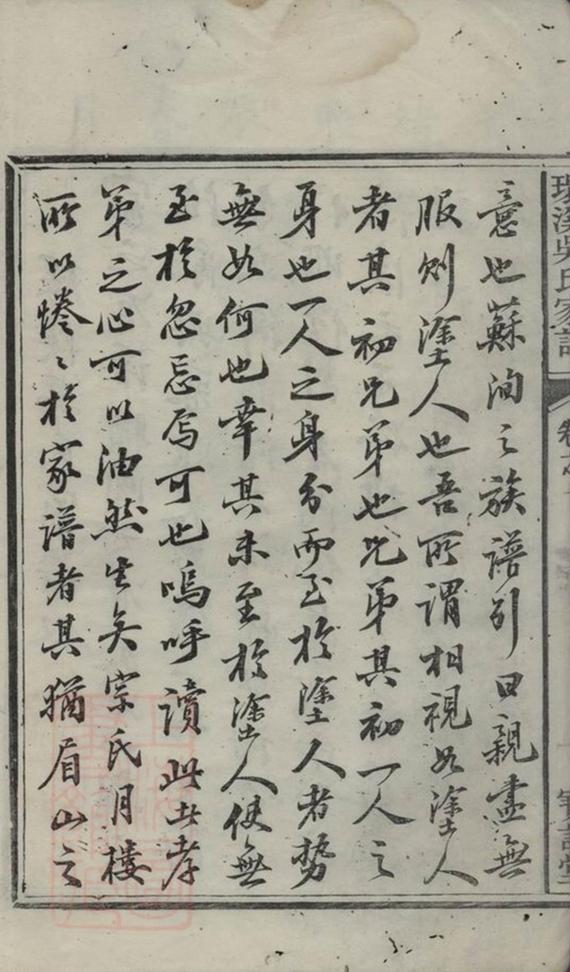 吳氏家
意也蘇洵之族譜引曰親盡無
服則塗人也吾所謂相視如塗人
者其初兄弟也兄弟其初一人之
身也一人之身分而至於塗人者勢
無如何也幸其未至於塗人使無
至於忽忘焉可也嗚呼讀此孝
弟之心可以油然生矣宗氏月樓
所以惓〻於家譜者其猶眉山之